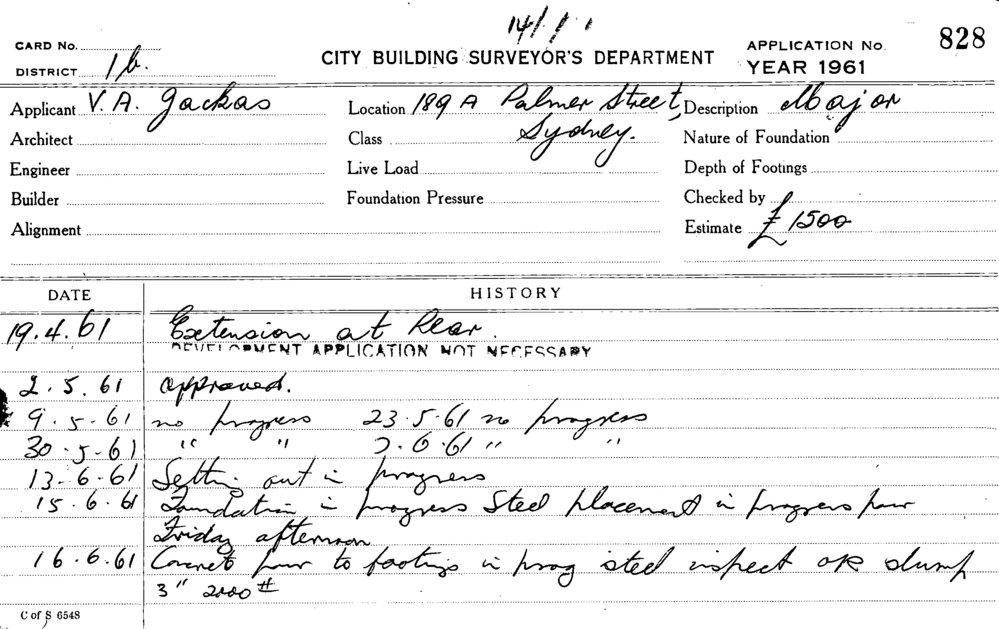 14/1/1
CARD No.
CITY BUILDING SURVEYOR'S DEPARTMENT
APPLICATION No. 828
DISTRICT 1b.
YEAR 1961
Applicant V. A. Jackas
Location 189 A Palmer Street, Sydney.
Description Major
Architect
Class
Nature of Foundation
Engineer
Live Load
Depth of Footings
Builder
Foundation Pressure
Checked by
Alignment
Estimate £1500
DATE HISTORY
19.4.61 Extension at Rear.
DEVELOPMENT APPLICATION NOT NECESSARY
2.5.61 approved.
9.5.61 no progress 23.5.61 no progress
30.5.61 " " .6.61 " "
13-6-61 Setting out in progress
15.6.61 Foundation in progress Steel placement in progress pour
Friday afternoon
16.6.61 Concrete pour to footings in prog steel inspect OK slump
3" 2000#
C of S 6548